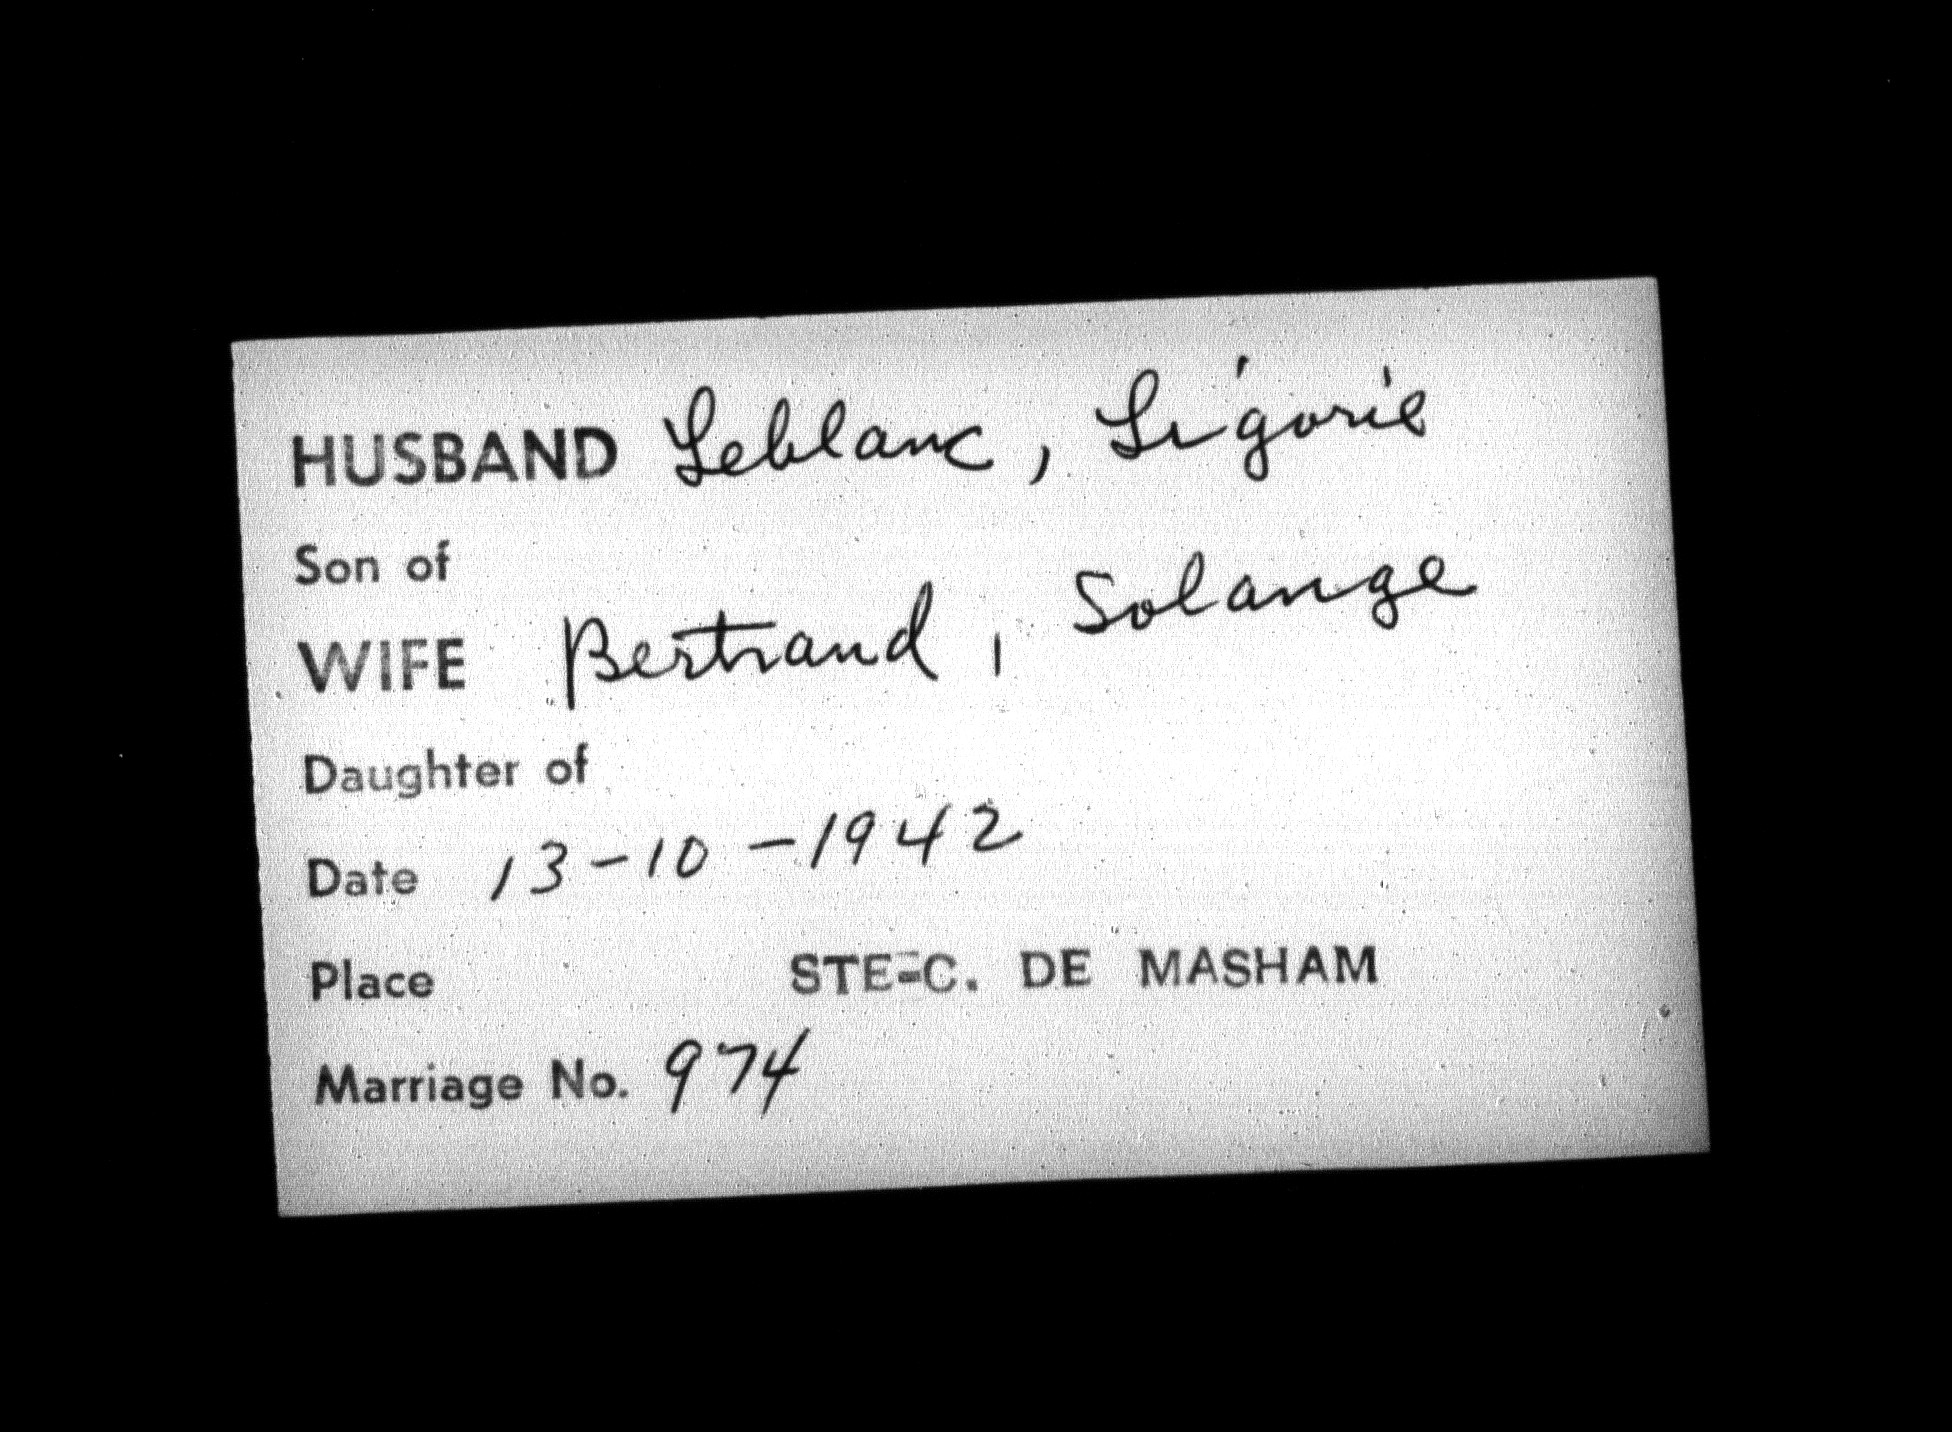 HUSBAND Leblanc, Ligorie
Son of
WIFE Bertrand, Solange
Daughter of
Date 13-10-1942
Place STE-C. DE MASHAM
Marriage No. 974